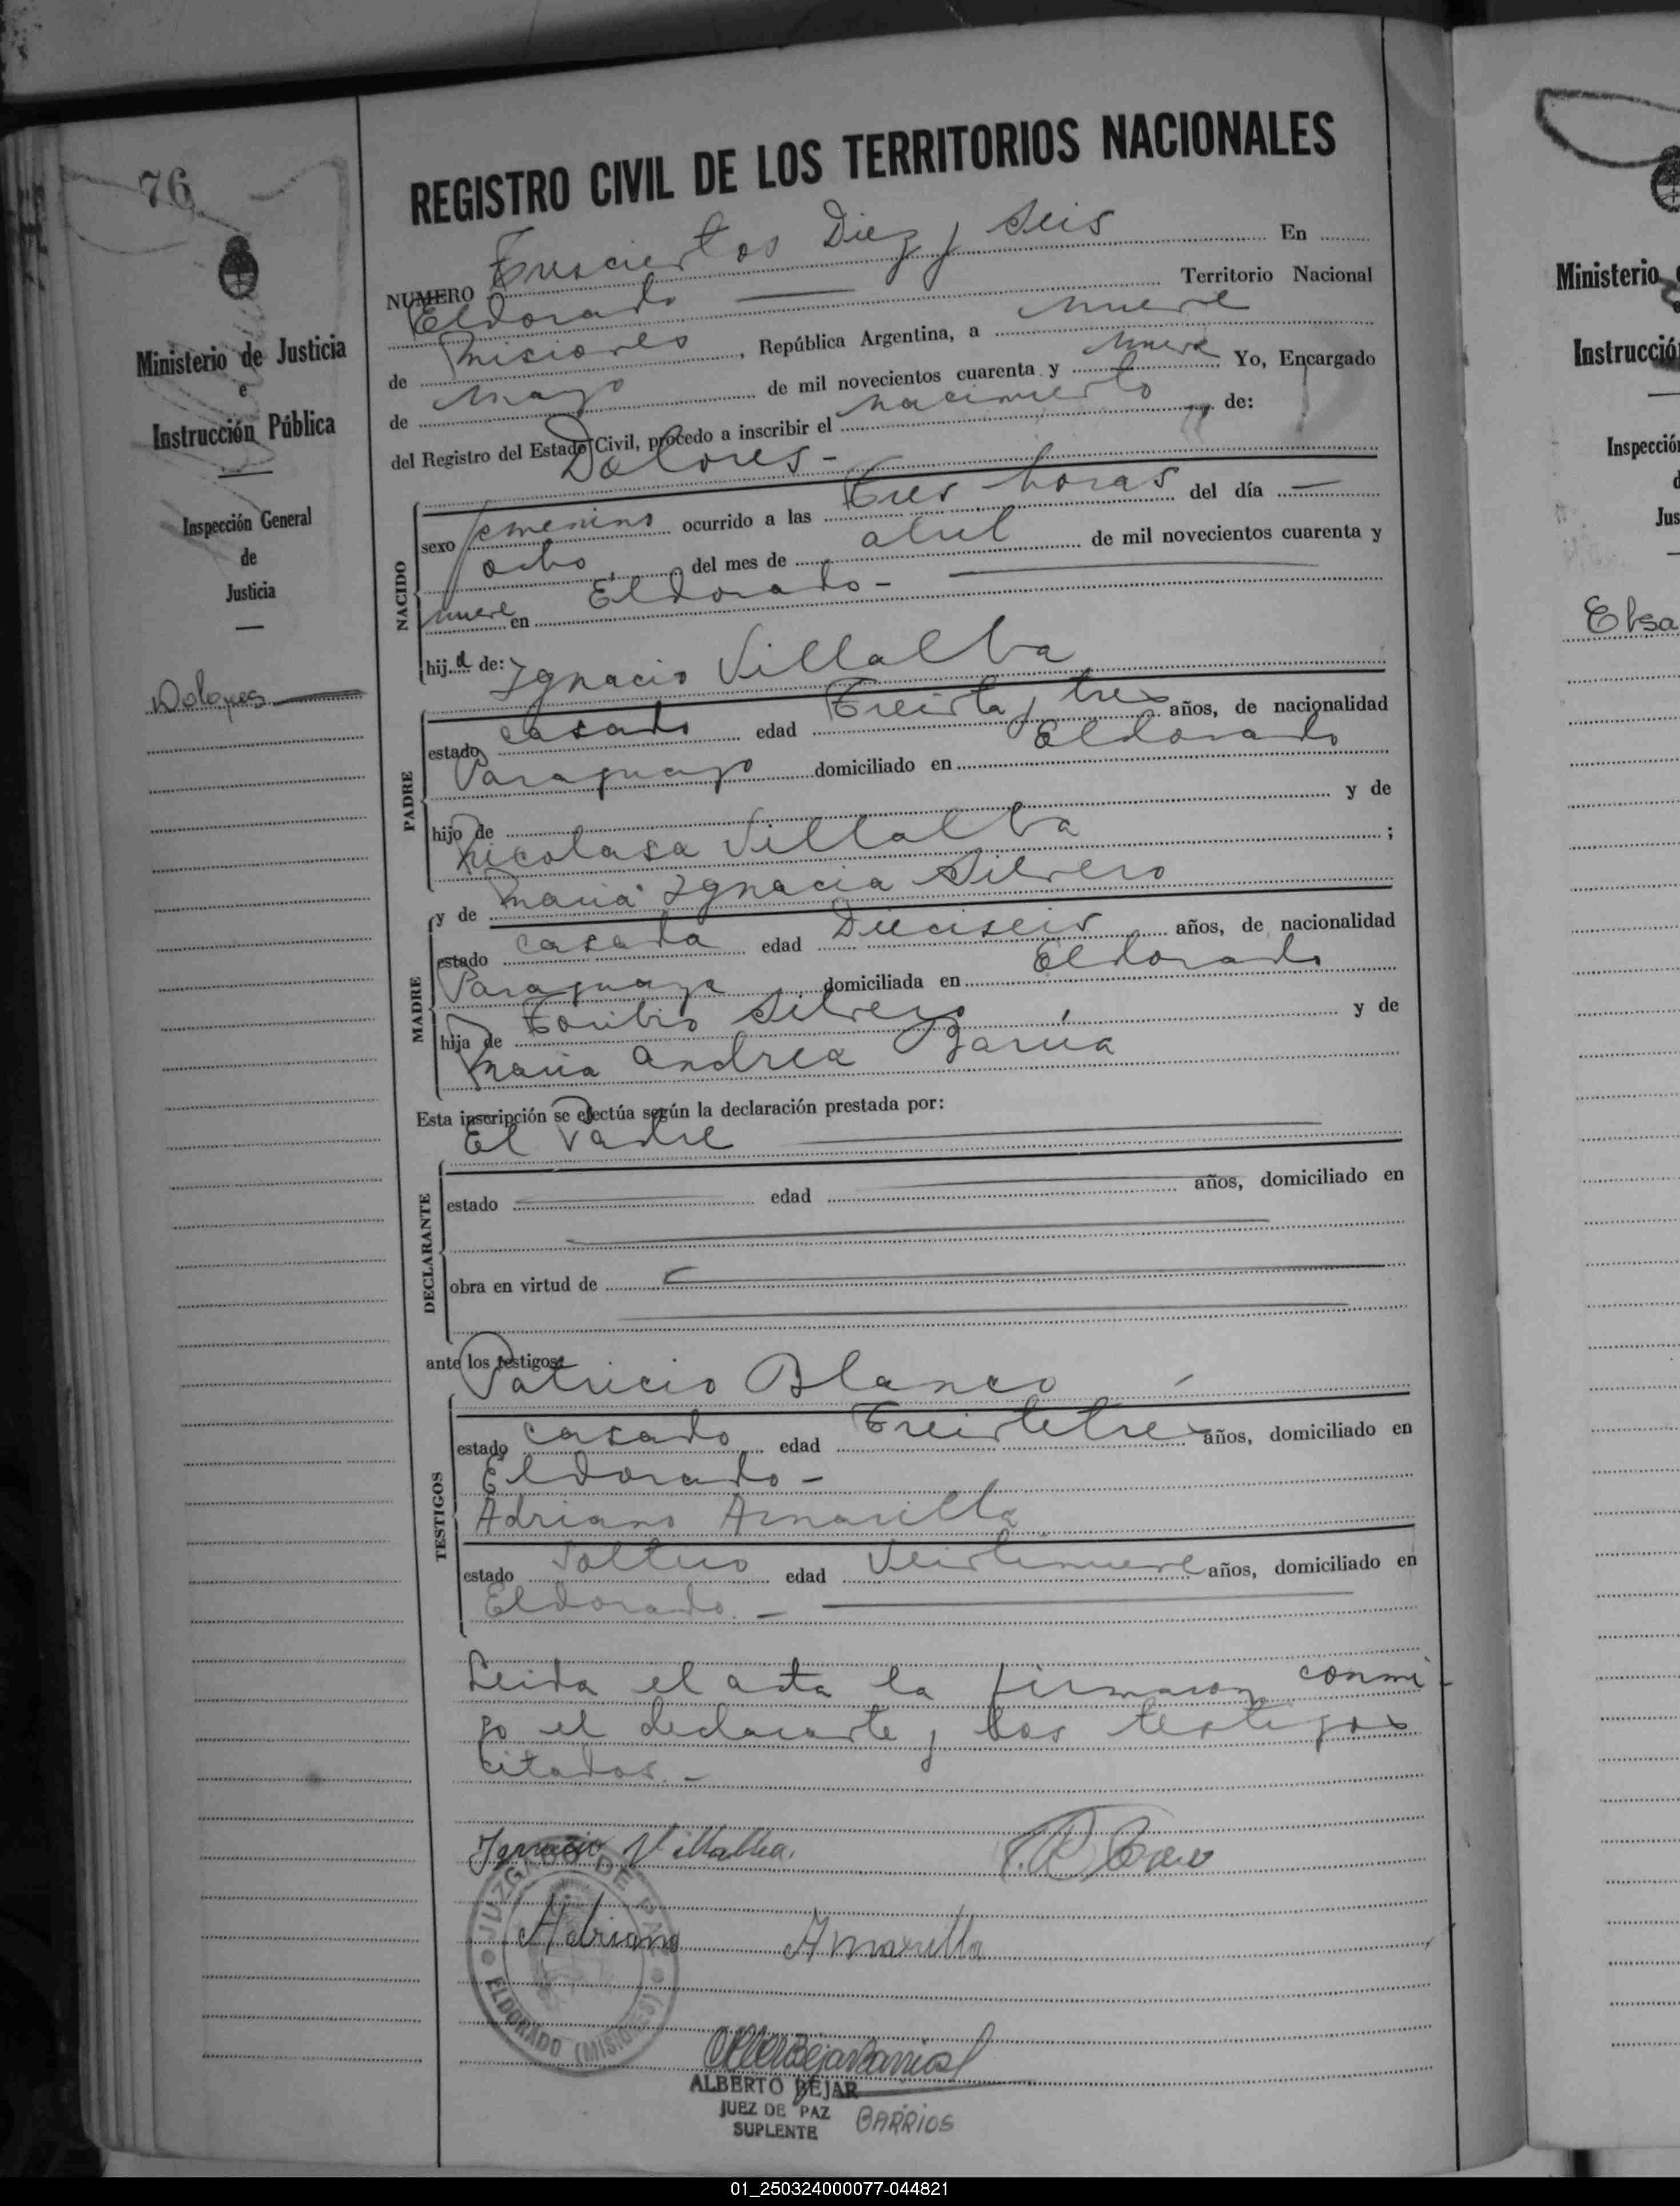 76
Ministerio de Justicia
e
Instrucción Pública
Inspección General
de
Justicia
Dolores
REGISTRO CIVIL DE LOS TERRITORIOS NACIONALES
NUMERO Trescientos Diez y Seis En
Eldorado Territorio Nacional
de Misiones, República Argentina, a nueve
de mayo de mil novecientos cuarenta y nueve Yo, Encargado
del Registro del Estado Civil, procedo a inscribir el nacimiento de:
Dolores-
NACIDO
sexo femenino ocurrido a las tres horas del día
ocho del mes de abril de mil novecientos cuarenta y
nueve en Eldorado-
hija de: Ignacio Villalba
PADRE
estado casado edad Treinta y tres años, de nacionalidad
Paraguayo domiciliado en Eldorado
hijo de y de
Nicolasa Villalba ;
y de Maria Ignacia Silvero
MADRE
estado casada edad Dieciseis años, de nacionalidad
Paraguaya domiciliada en Eldorado
hija de Toribio Silvero y de
Maria Andrea
Esta inscripción se efectúa según la declaración prestada por:
El Padre
DECLARANTE
estado edad años, domiciliado en
obra en virtud de
ante los testigos:
Patricio Blanco
TESTIGOS
estado casado edad Treintitres años, domiciliado en
Eldorado-
Adriano Amarilla
estado Soltero edad Veintinueve años, domiciliado en
Eldorado.-
Leida el acta la firmaron conmi-
go el declarante y los testigos
citados.-
Ignacio Villalba.
Adriano Amarilla
JUZGADO DE PAZ
ELDORADO (MISIONES)
ALBERTO BEJAR
JUEZ DE PAZ
SUPLENTE
BARRIOS
Ministerio
Instrucció
Inspecció
d
Jus
Elsa
01_250324000077-044821